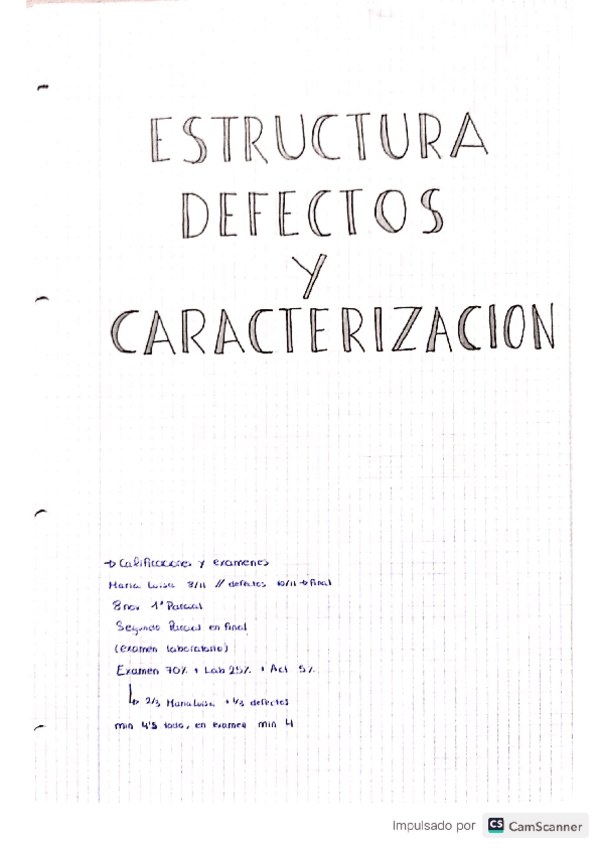 ESTRUCTURA
DEFECTOS
Y
CARACTERIZACION
→ Calificaciones y examenes
Maria Luisa 8/11 // defectos 10/11 → final
8 nov 1º Parcial
Segundo Parcial en final
(examen laboratorio)
Examen 70% + Lab 25% + Act 5%
↳ 2/3 Maria Luisa + 1/3 defectos
min 4'5 todo, en examen min 4
Impulsado por CS CamScanner